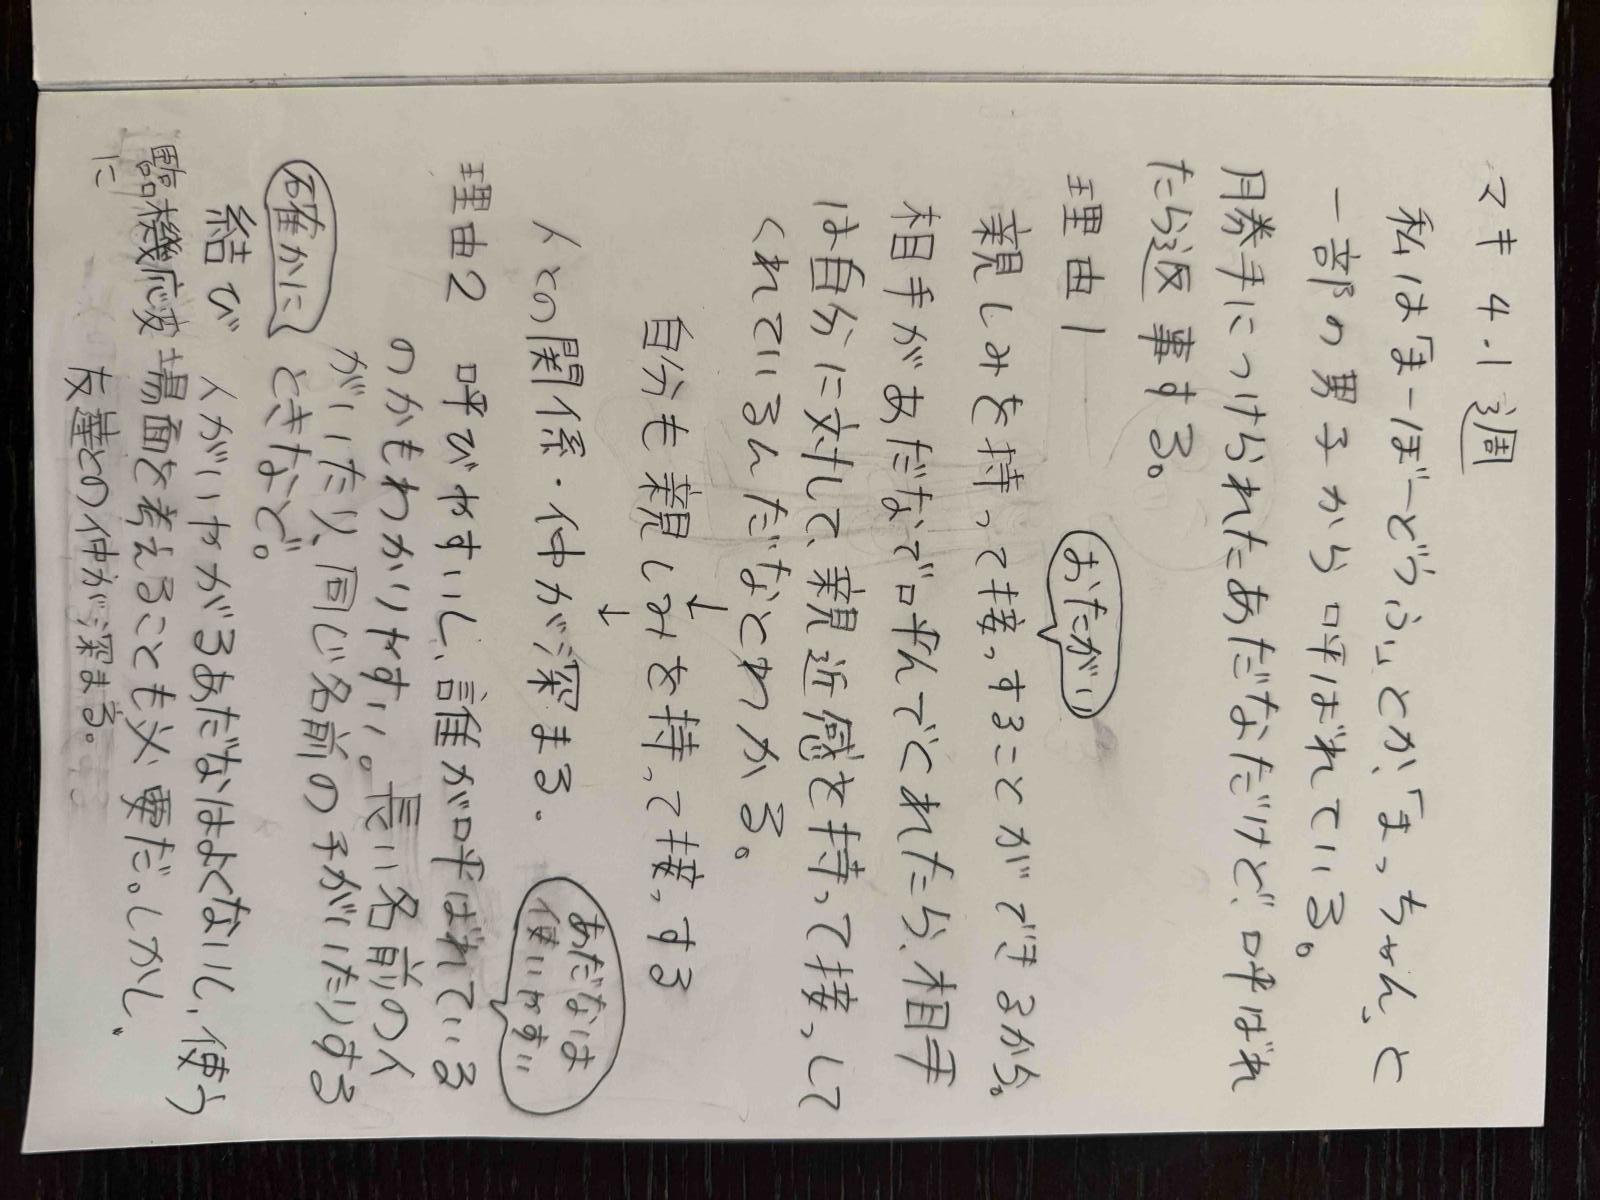 マキ 4.1週
私は「まーぼーどうふ」とか、「まっちゃん」と
一部の男子から呼ばれている。
勝手につけられたあだなだけど、呼ばれ
たら返事する。
理由1
おたがい
親しみを持って接っすることができるから。
相手があだなで呼んでくれたら、相手
は自分に対して、親近感を持って接っして
くれているんだなとわかる。
↓
自分も親しみを持って接っする
↓
人との関係・仲が深まる.
あだなは
使いやすい
理由2 呼びやすいし、誰が呼ばれている
のかもわかりやすい。長い名前の人
がいたり、同じ名前の子がいたりする
ときなど。
確かに
結び 人がいやがるあだなはよくないし、使う
臨機応変に 場面を考えることも必要だ。しかし、
友達との仲が深まる。